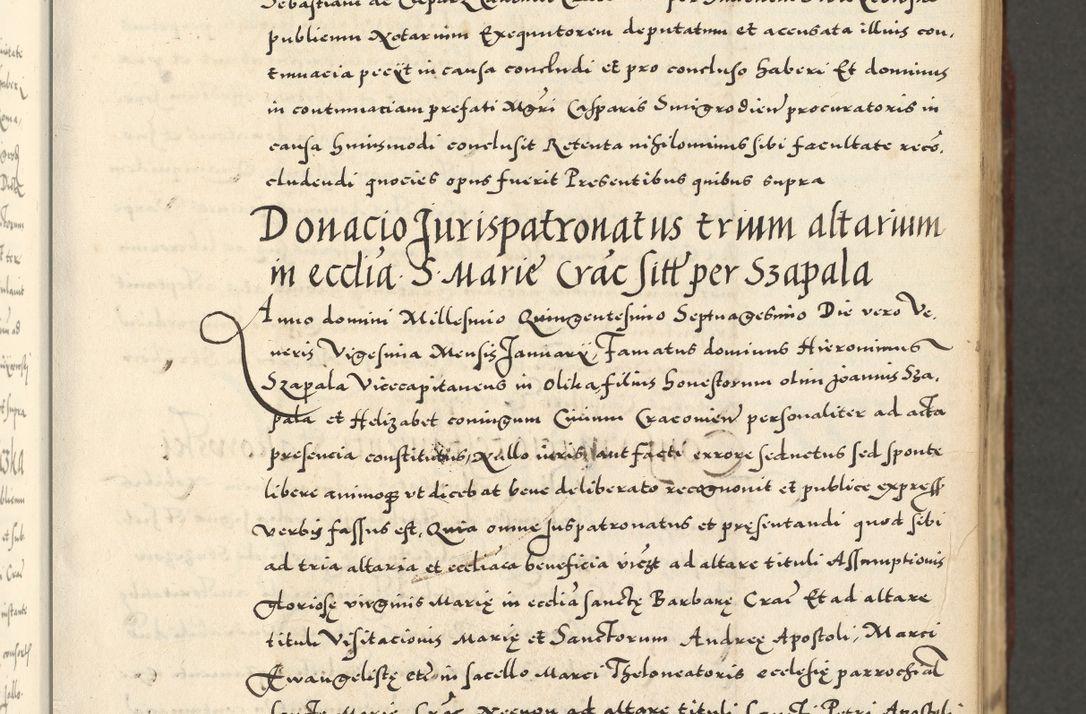 publicum Notarium Exequutorem deputatum et accusata illius con,
tumacia pecijt in causa concludi et pro concluso haberi Et dominus
in contumaciam prefati Mgri Casparis Smigrodien procuratoris in
causa huiusmodi conclusit Retenta nihilominus sibi facultate reco,
cludendi quocies opus fuerit Presentibus quibus supra
Donacio Jurispatronatus trium altarium
in ecclia S. Marie Crac sitt per Szapala
Anno domini Millesimo Quingentesimo Septuagesimo Die vero Ve,
neris Vigesima Mensis Januarij, Famatus dominus Hieronimus
Szapala Vicecapitaneus in Olika, filius honestorum olim Joannis Sza,
pala et Helizabet coniugum Civium Cracovien personaliter ad acta
presencia constitutus, Nullo iuris aut facti errore seductus sed sponte
libere animoq ut dicebat bene deliberato recognovit et publice express
verbis fassus est, Quia omne juspatronatus et pręsentandi quod sibi
ad tria altaria et eccliaca beneficia vicet ad altare tituli Assumptionis
Gloriosę virginis Marię in ecclia sanctę Barbarę Crac Et ad altare
tituli Visitacionis Marię et Sanctorum Andreę Apostoli, Marci
Ewangelistę etc in sacello Marci Theloneatoris ecclesię parrochial
Sanctę Marię Crac Necnon ad altare tituli Sancti Petri Apostoli